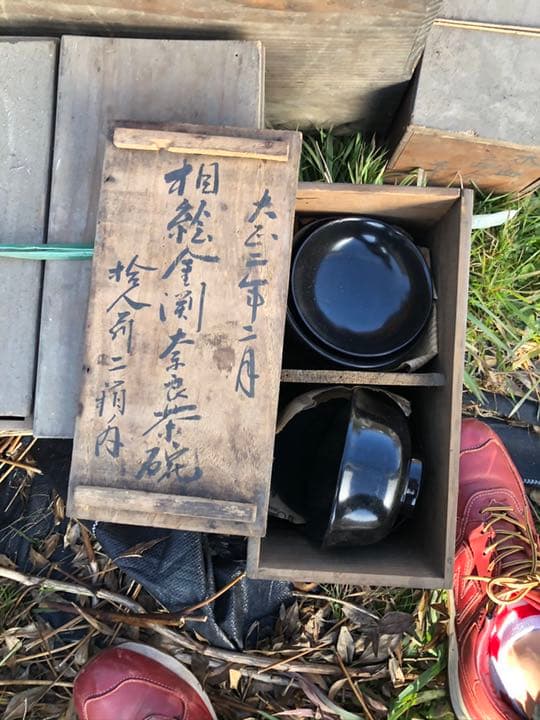 大正二年二月
相絵金渕奈良茶碗
拾人前二箱内